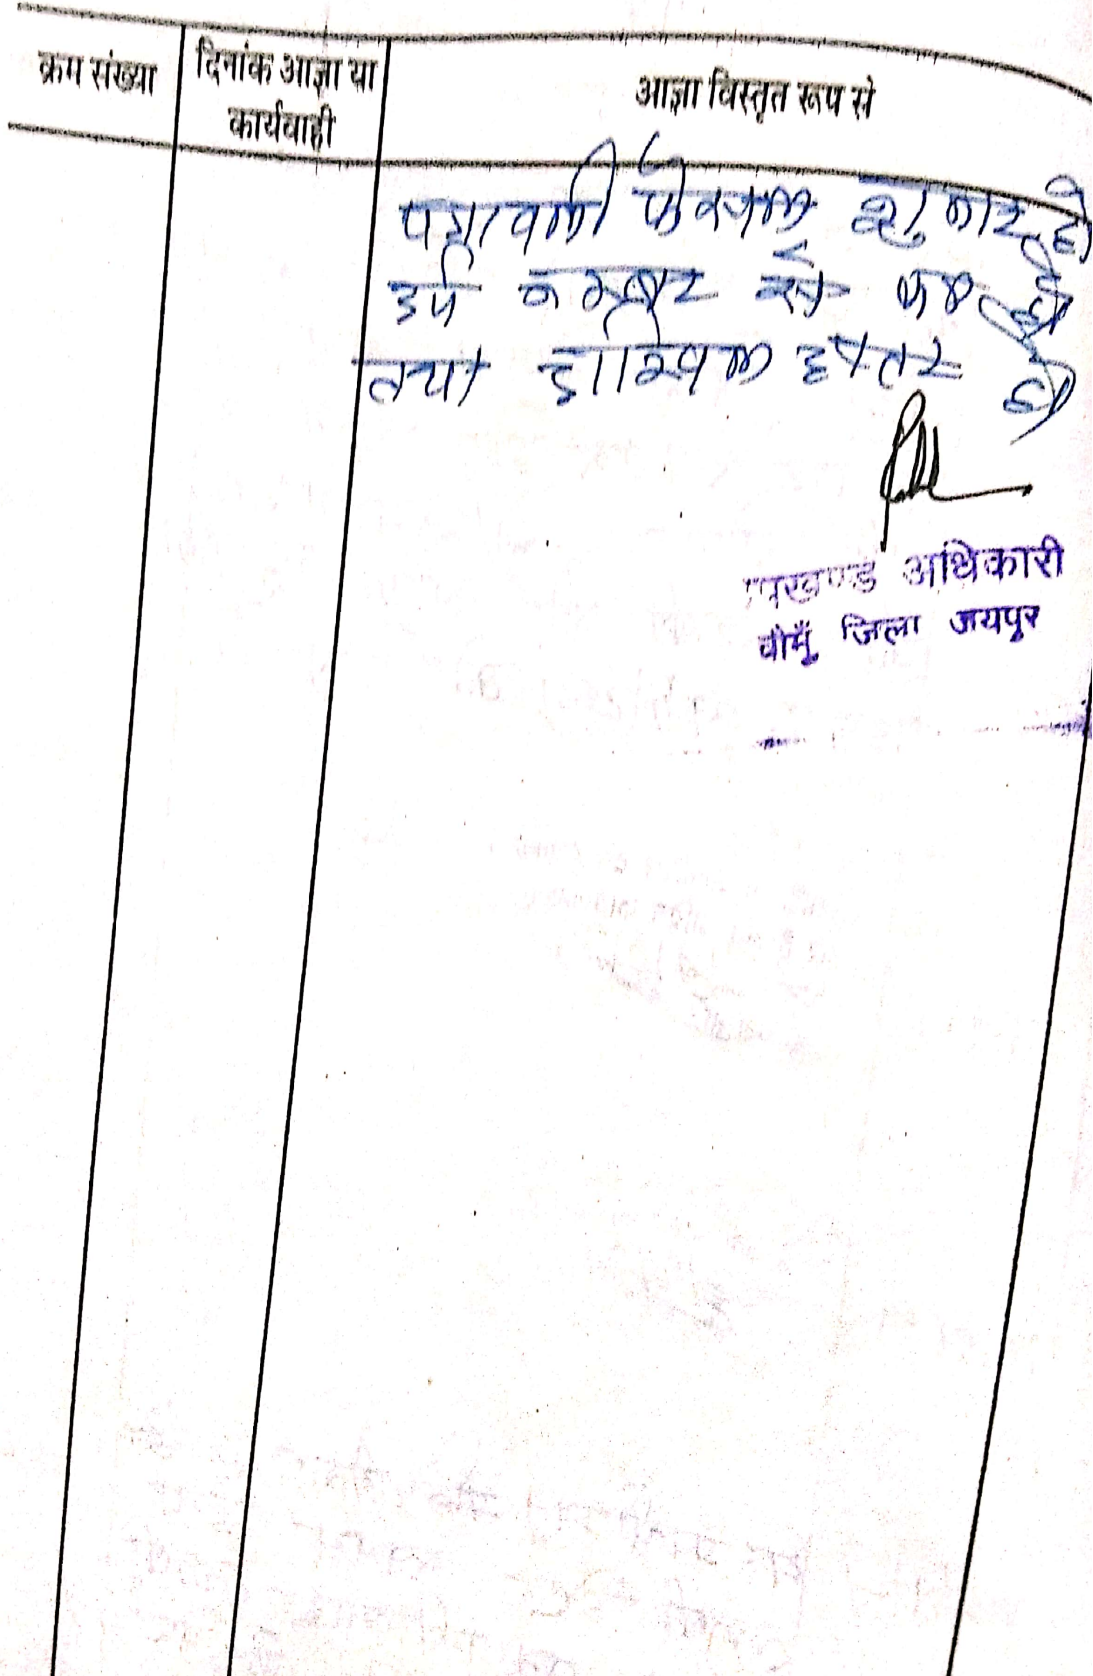 क्रम संख्या
दिनांक आज्ञा या
कार्यवाही
आज्ञा विस्तृत रूप से
पत्रावली फैसल शुमार हो
नम्बर से कम हो
तथा दाखिल दफ्तर हो
अधिकारी
चौमूँ जिला जयपुर